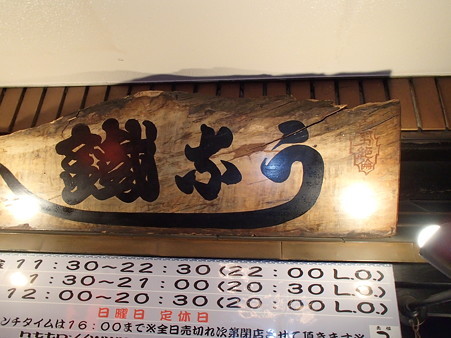 うな鐵
11:30～22:30(22:00 L.O.)
11:30～21:30(21:00 L.O.)
12:00～20:30(20:00 L.O.)
日曜日 定休日
ンチタイムは16:00まで※全日売切れ次第閉店させて頂きます※